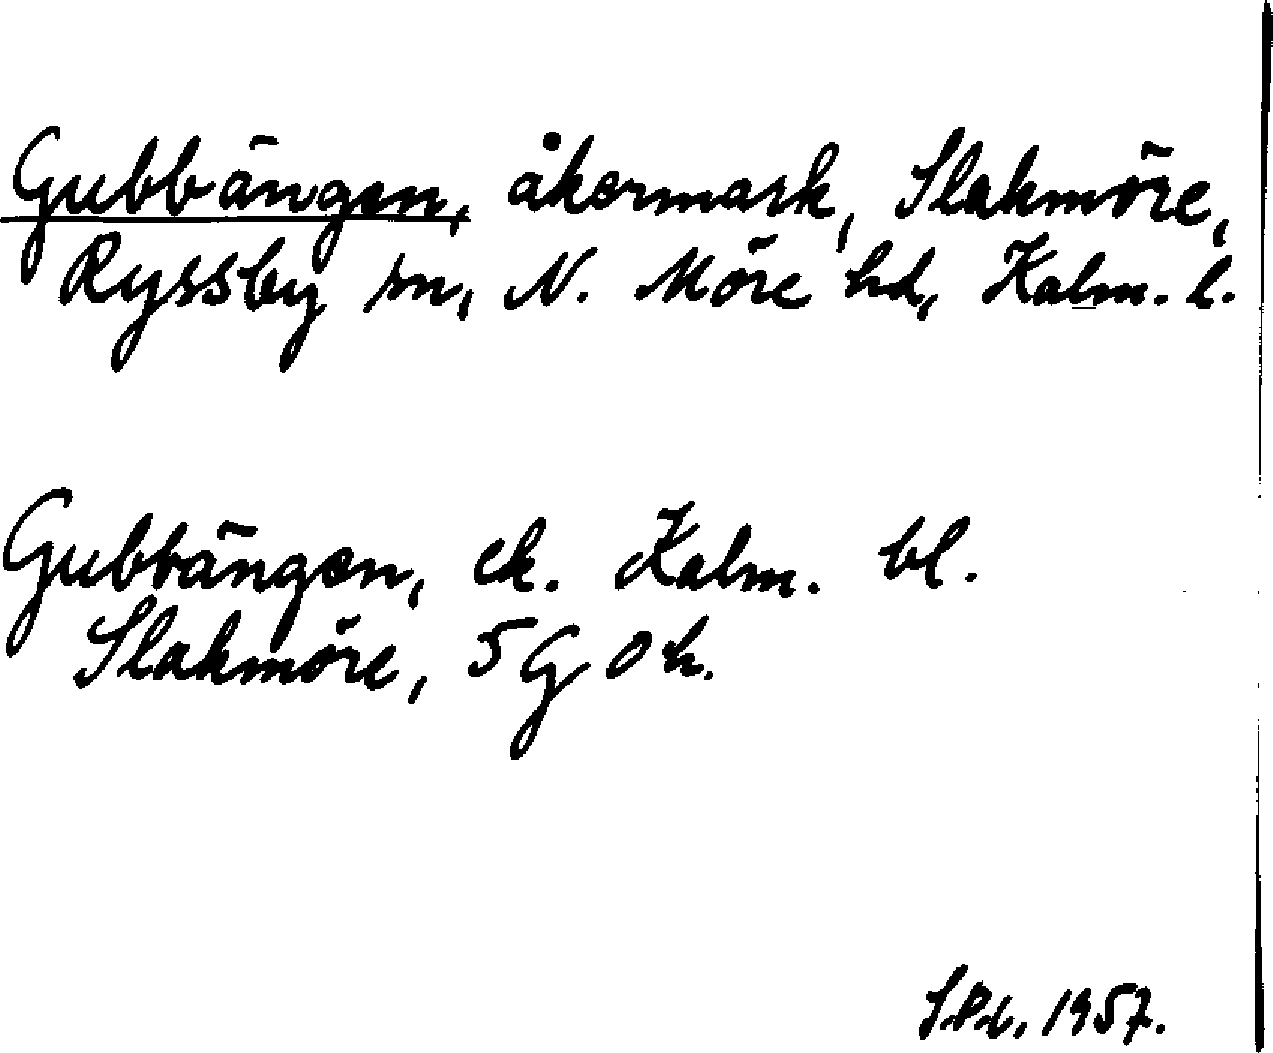 Gubbängen, åkermark, Slakmöre,
Ryssby sn, N. Möre hd, Kalm. l.
Gubbängen, ek. Kalm. bl.
Slakmöre, 5 G 0 h.
1957.